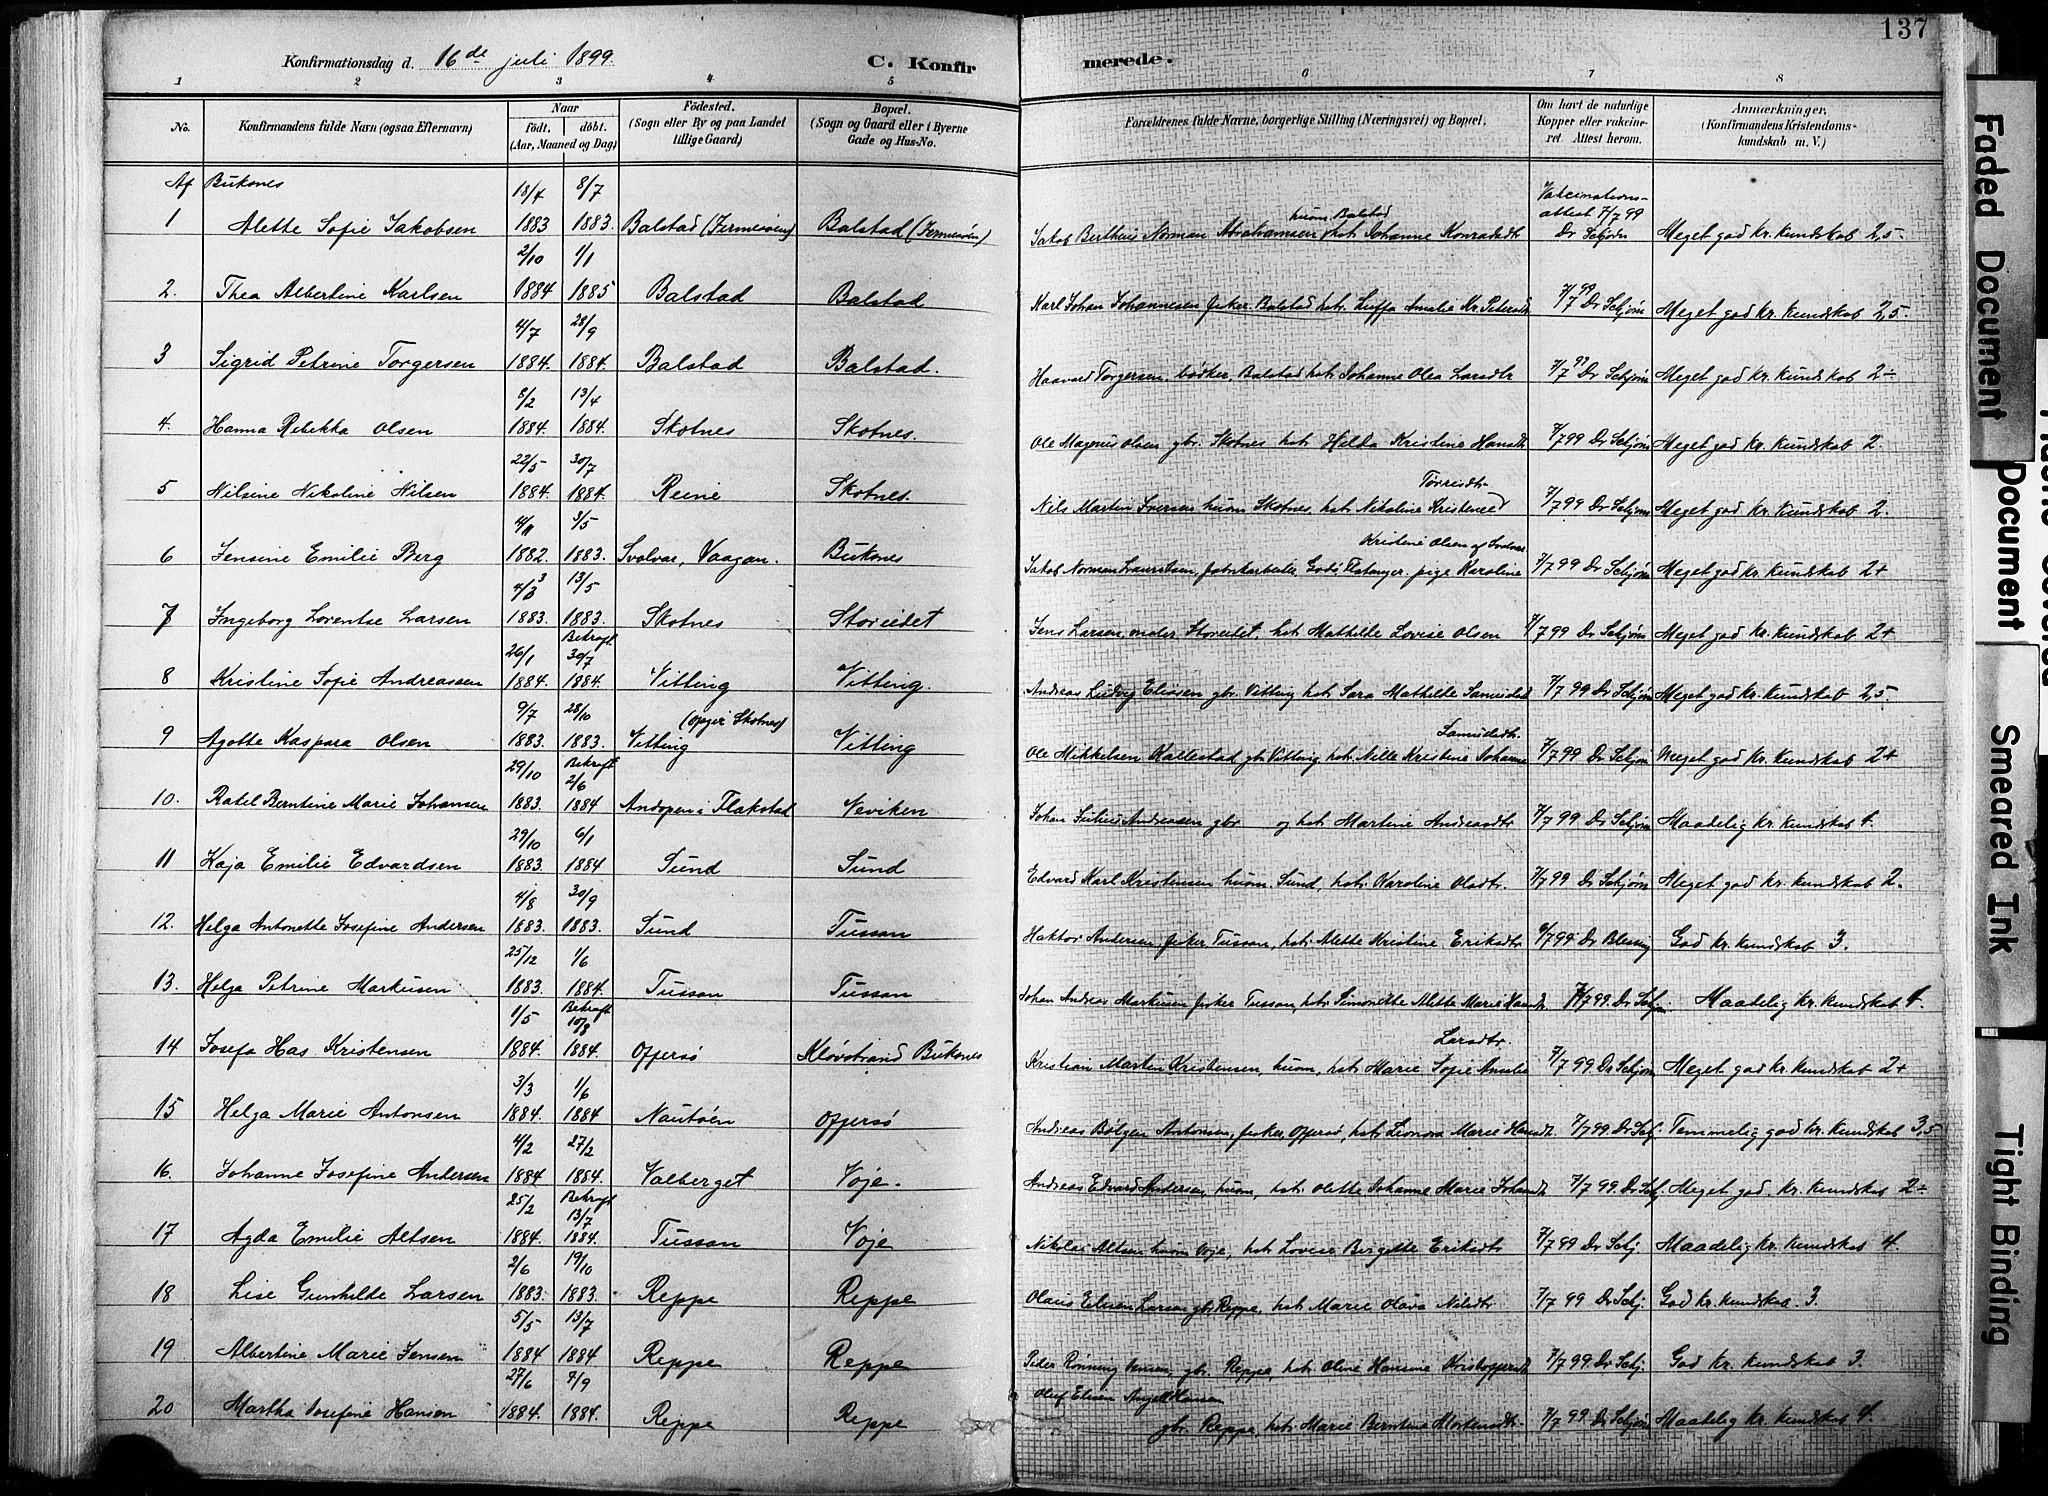 137
Konfirmationsdag d. 16de juli 1899. C. Konfirmerede.
1 2 3 4 5 6 7 8
No. Konfirmandens fulde Navn (ogsaa Efternavn) Naar født, døbt. (Aar, Maaned og Dag) Fødested. (Sogn eller By og paa Landet tillige Gaard) Bopæl. (Sogn og Gaard eller i Byerne Gade og Hus-No. Forældrenes fulde Navne, borgerlige Stilling (Næringsvei) og Bopæl. Om havt de naturlige Kopper eller vakcineret. Attest herom. Anmærkninger. (Konfirmandens Kristendomskundskab m. V.)
Af Buksnes
1 Alette Sofie Jakobsen 18/4 1883 8/7 1883. Balstad Balstad Jakob Bertheus Norman Abrahamsen husm. Balstad hst. Johanne Konradsdtr Vakcinationsattest 7/7 99 Dr Schjøn Meget god kr. kundskab 2,5
2. Thea Albertine Karlsen 2/10 1884 1/1 1885 Balstad Balstad Karl Johan Johannesen fisker Balstad hst. Amalie Kr. Pedersdtr 7/7 99 Dr Schjøn Meget god kr. kundskab 2,5
3 Sigrid Petrine Torgersen 4/7 1884. 28/9 1884. Balstad Balstad. Haavard Torgersen, bødker, Balstad hst. Johanne Olea Larsdtr 7/7 Dr Schjøn Meget god kr. kundskab 2÷
4. Hanna Rebekka Olsen 8/2 1884. 13/4 1884. Skotnes Skotnes. Ole Magnus Olsen gbr. Skotnes hst. Helda Kristine Hansdtr 7/7 99 Dr Schjøn Meget god kr. kundskab 2.
5 Nilsine Nikoline Nilsen 22/5 1884. 30/7 1884. Reine Skotnes. Nils Martin Iversen husm Skotnes, hst. Nikoline Kristence Torrisdtr 7/7 99 Dr Schjøn Meget god kr. kundskab 2.
6 Jensine Emilie Berg 4/11 1882. 3/5 1883. Svolvær, Vaagan. Buksnes Jakob Norman Lauritsen, fabrikarbeider, Flatanger, pige Karoline Kristine Olsen af Svolvær 7/7 99 Dr Schjøn Meget god kr. kundskab 2+
7 Ingeborg Lorentse Larsen 4/3 1883. 13/5 1883. Skotnes Storeidet Jens Larsen, maler, Storeidet, hst. Mathilde Lovise Olsen 7/7 99 Dr Schjøn Meget god kr. kundskab 2+
8 Kristine Sofie Andreassen 26/1 1884. Bekræft. 30/7 1884. Vitting Vitting. Andreas Ludvig Eliasen gbr. Vitting hst. Sara Mathilde Samuelsdtr 7/7 99 Dr Schjøn Meget god kr. kundskab 2,5
9 Agotte Kaspara Olsen 9/7 1883. 28/10 1883. Vitting Vitting Ole Mikkelsen Kallestad gbr. Vitting, hst. Nille Kristine Johanna Samuelsdtr. 7/7 99 Dr Schjøn Meget god kr. kundskab 2+
10. Rakel Berntine Marie Johansen 29/10 1883. Bekræft. 2/6 1884 Andopen i Flakstad Neviken Johan Julius Andreasen gbr. og hst. Martine Andreasdtr. 7/7 99. Dr Schjøn Maadelig kr. kundskab 4.
11 Kaja Emilie Edvardsen 29/10 1883. 6/1 1884 Sund Sund Edvard Karl Kristensen husm. Sund, hst. Karoline Olsdtr. 7/7 99 Dr Schjøn Meget god kr. kundskab 2.
12. Helga Antonette Josefine Andersen 4/8 1883. 30/9 1883. Sund Tussan Haktor Andersen fisker, Tussan, hst. Alette Kristine Eriksdtr. 6/7 99. Dr Blessing God kr. kundskab 3.
13. Helga Petrine Markusen 25/12 1883. 1/6 1884. Tussan Tussan Johan Andreas Markusen fisker Tussan, hst. Simonette Alette Marie Hansdtr. 7/7 99. Dr Schjøn. Maadelig kr. kundskab 4.
14 Josefa Has Kristensen 1/5 1884. Bekræft. 10/8 1884. Offersø Kløvstrand Buksnes Kristian Martin Kristensen, husm, hst. Marie Sofie Amalie Larsdtr. 7/7 99. Dr Schjøn Meget god kr. kundskab 2+
15 Helga Marie Antonsen 3/3 1884. 1/6 1884 Nautøen Offersø Andreas Bølgen Antonsen, fisker, Offersø, hst. Leonora Marie Hansdtr. 7/7 99. Dr Schj. Temmelig god kr. kundskab 3,5
16. Johanne Josefine Andersen 4/2 1884 27/2 1884. Valberget Voje. Andreas Edvard Andersen, husm, hst. Olette Johanne Marie Johansdtr 7/7 99. Dr Schj Meget god. kr. kundskab 2÷
17 Agda Emilie Altsen 25/2 1884. Bekræft. 13/7 1884. Tussan Voje Nikolai Altsen husm Voje, hst. Lovise Birgette Eriksdtr 7/7 99 Dr Schj. Maadelig kr. kundskab 4.
18 Lise Gunhilde Larsen 2/6 1883. 19/10 1883. Reppe Reppe Olaus Elisen Larsen gbr. Reppe, hst. Marie Olava Nilsdtr. 7/7 99 Dr Schj. God kr. kundskab. 3.
19 Albertine Marie Jensen 5/5 1884 13/7 1884 Reppe Reppe Peder Rønning Jensen, gbr. Reppe, hst. Oline Hansine Kristoffersdtr 7/7 99. Dr Schj. God kr. kundskab 3.
20 Martha Josefine Hansen 27/6 1884. 7/9 1884. Reppe Reppe Oluf Elisen Angell Hansen gbr. Reppe, hst. Marie Berntine Mortensdtr. 7/7 99 Dr Schjøn Maadelig kr. kundskab 4.
Faded Document
Document
Smeared Ink
Tight Binding